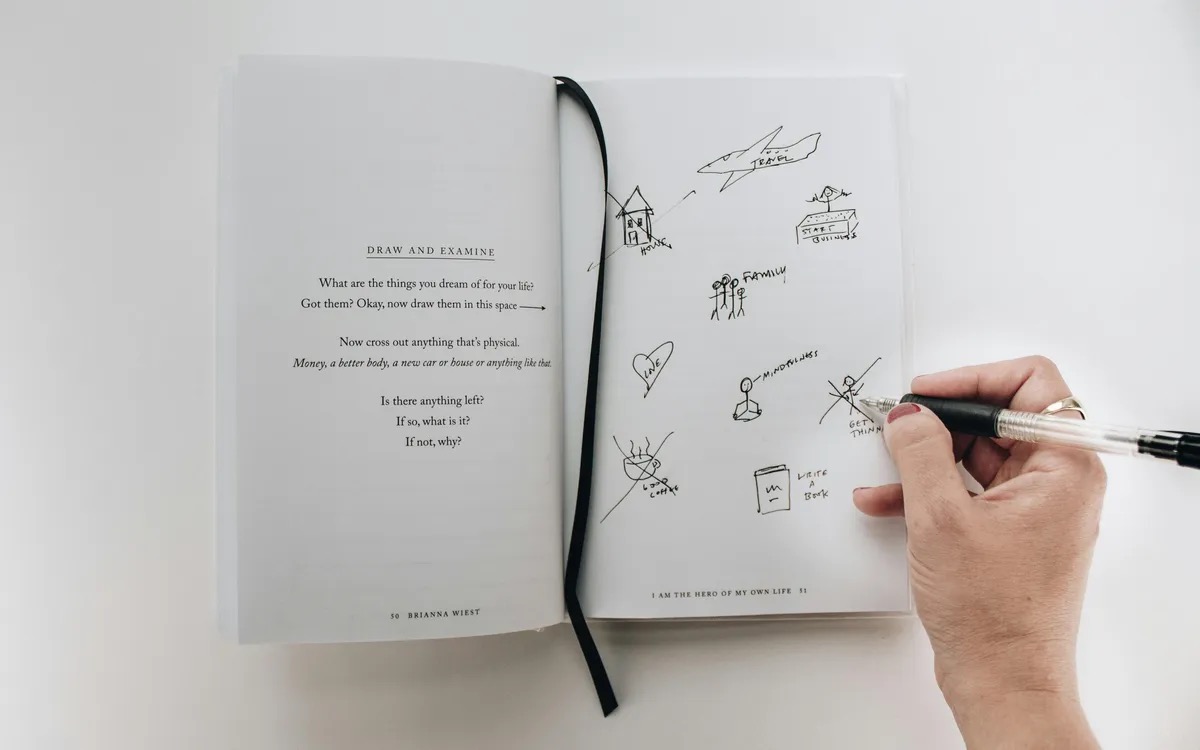 DRAW AND EXAMINE
What are the things you dream of for your life?
Got them? Okay, now draw them in this space
Now cross out anything that's physical.
Money, a better body, a new car or house or anything like that.
Is there anything left?
If so, what is it?
If not, why?
50 BRIANNA WIEST
TRAVEL
HOUSE
START
BUSINESS
FAMILY
LOVE
MINDFULNESS
GET
THINN
GOOD
COFFEE
WRITE
A
BOOK
I AM THE HERO OF MY OWN LIFE 51